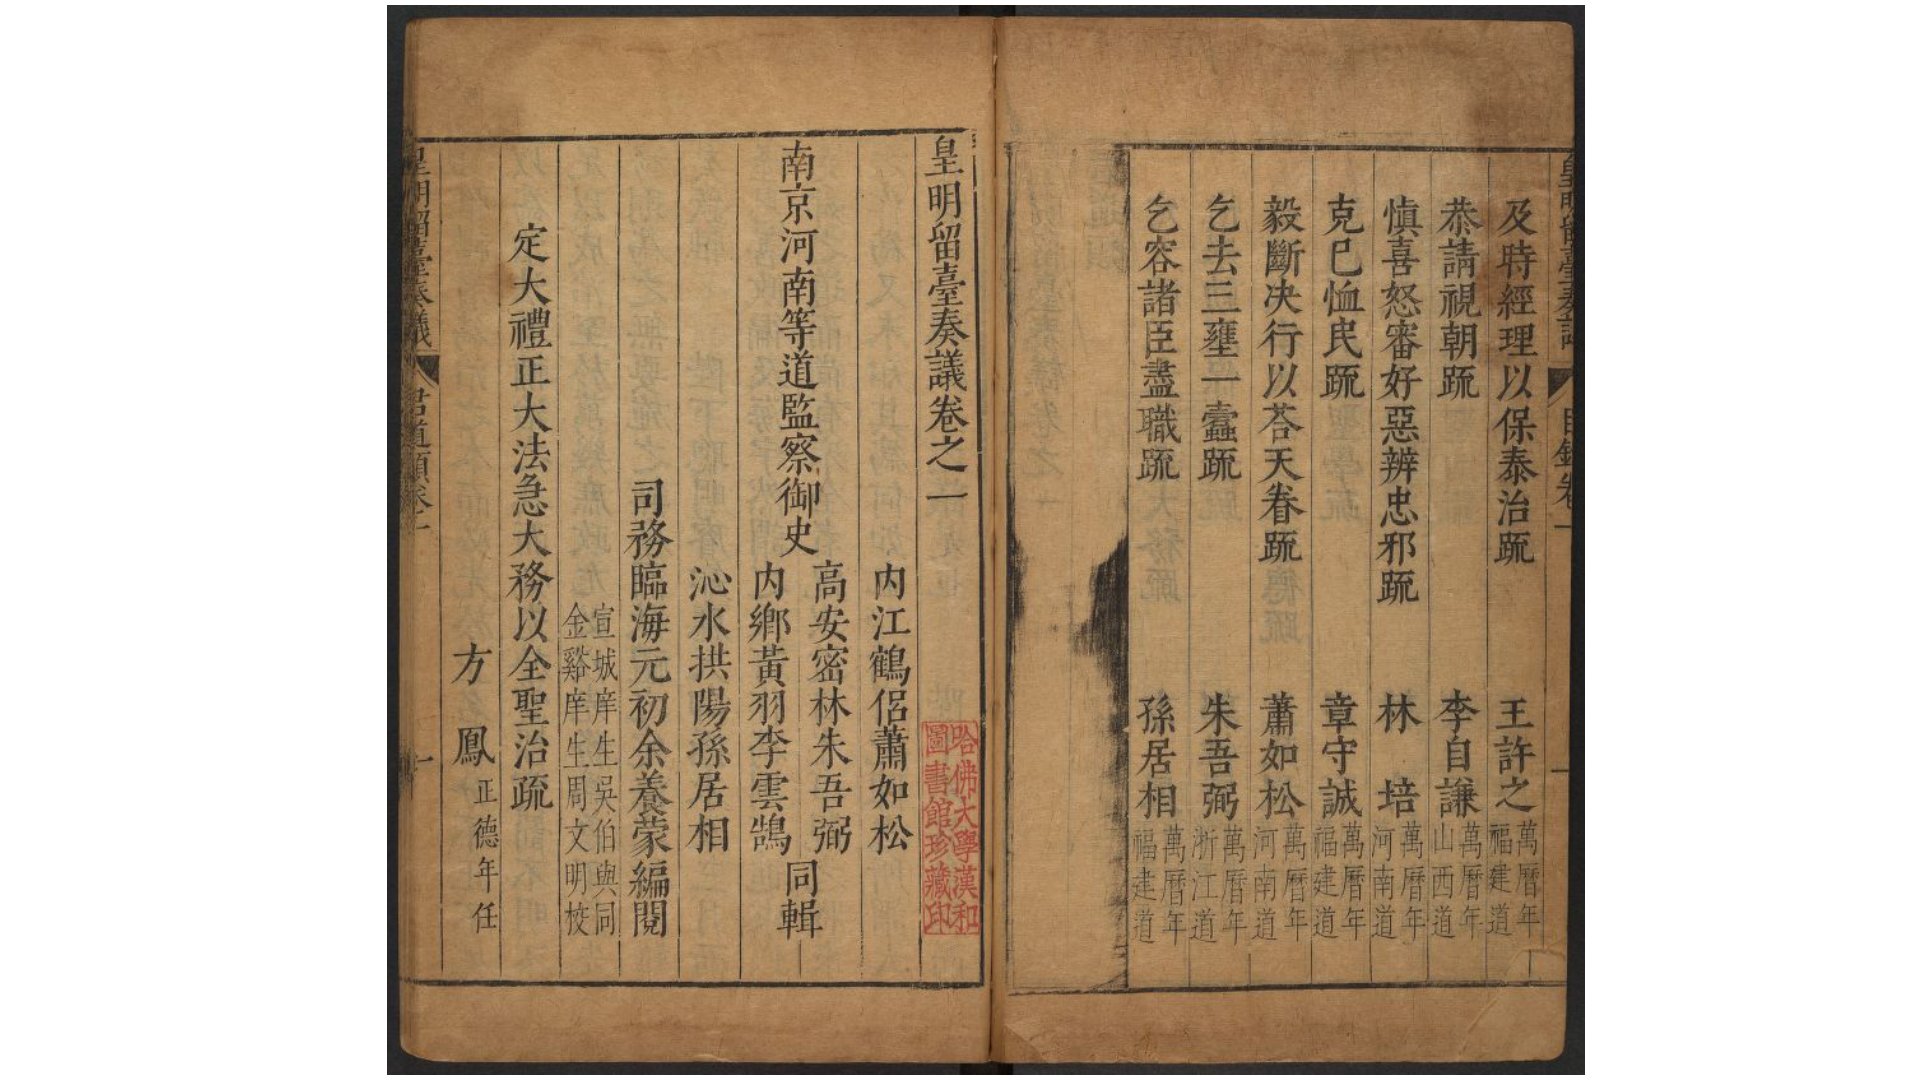 及時經理以保泰治疏 王許之 萬曆年福建道
恭請視朝疏 李自謙 萬曆年山西道
慎喜怒審好惡辨忠邪疏 林培 萬曆年河南道
克已恤民疏 章守誠 萬曆年福建道
毅斷決行以荅天眷疏 蕭如松 萬曆年河南道
乞去三壅一蠹疏 朱吾弼 萬曆年浙江道
乞容諸臣盡職疏 孫居相 萬曆年福建道
皇明留臺奏議卷之一
哈佛大學漢和
圖書館珍藏印
內江鶴侶蕭如松
高安密林朱吾弼
南京河南等道監察御史 同輯
內鄉黃羽李雲鵠
沁水拱陽孫居相
司務臨海元初余養蒙編閱
宣城庠生吳伯與同
金谿庠生周文明校
定大禮正大法急大務以全聖治疏
方鳳 正德年任
皇明留臺奏議 君道類卷一 一